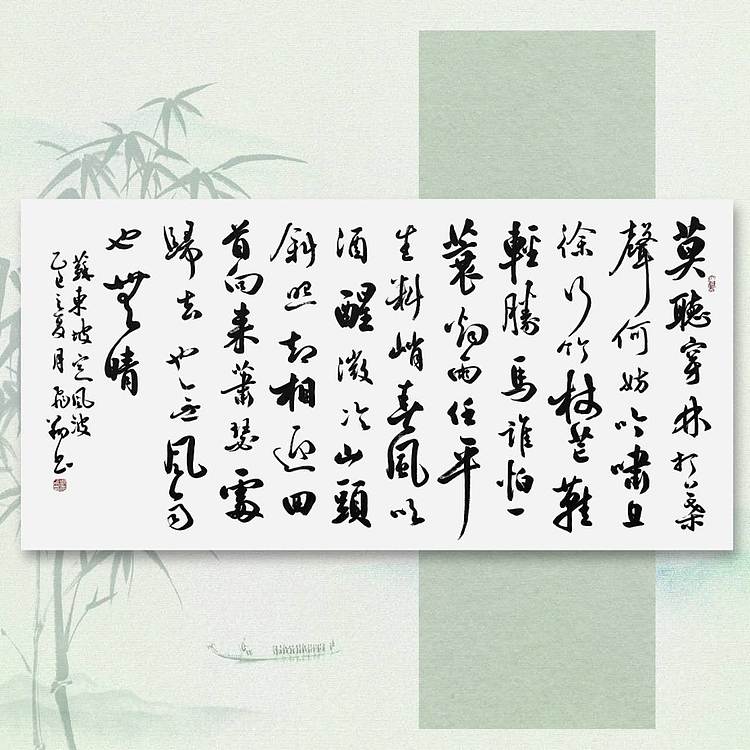 莫聽穿林打葉
聲何妨吟嘯且
徐行竹杖芒鞋
輕勝馬誰怕一
蓑烟雨任平
生料峭春風吹
酒醒微冷山頭
斜照却相迎回
首向來蕭瑟處
歸去也無風雨
也無晴
蘇東坡定風波
乙巳之夏月书